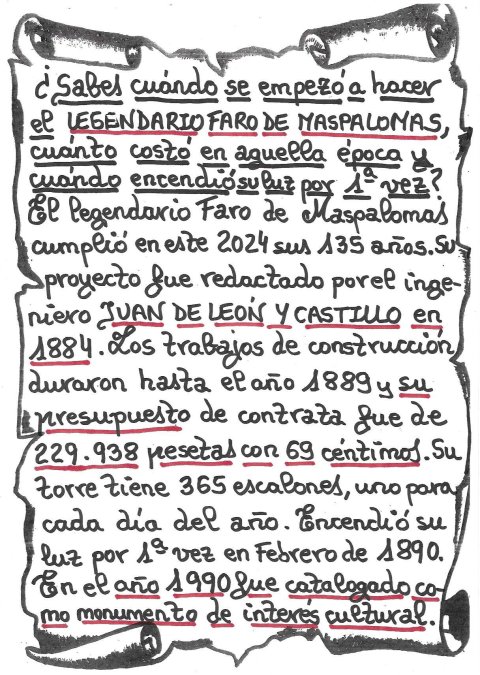 ¿Sabes cuándo se empezó a hacer
el LEGENDARIO FARO DE MASPALOMAS,
cuánto costó en aquella época y
cuándo encendió su luz por 1ª vez?
El legendario Faro de Maspalomas
cumplió en este 2024 sus 135 años. Su
proyecto fue redactado por el inge-
niero JUAN DE LEÓN Y CASTILLO en
1884. Los trabajos de construcción
duraron hasta el año 1889 y su
presupuesto de contrata fue de
229.938 pesetas con 69 céntimos. Su
torre tiene 365 escalones, uno para
cada día del año. Encendió su
luz por 1ª vez en Febrero de 1890.
En el año 1990 fue catalogado co-
mo monumento de interés cultural.